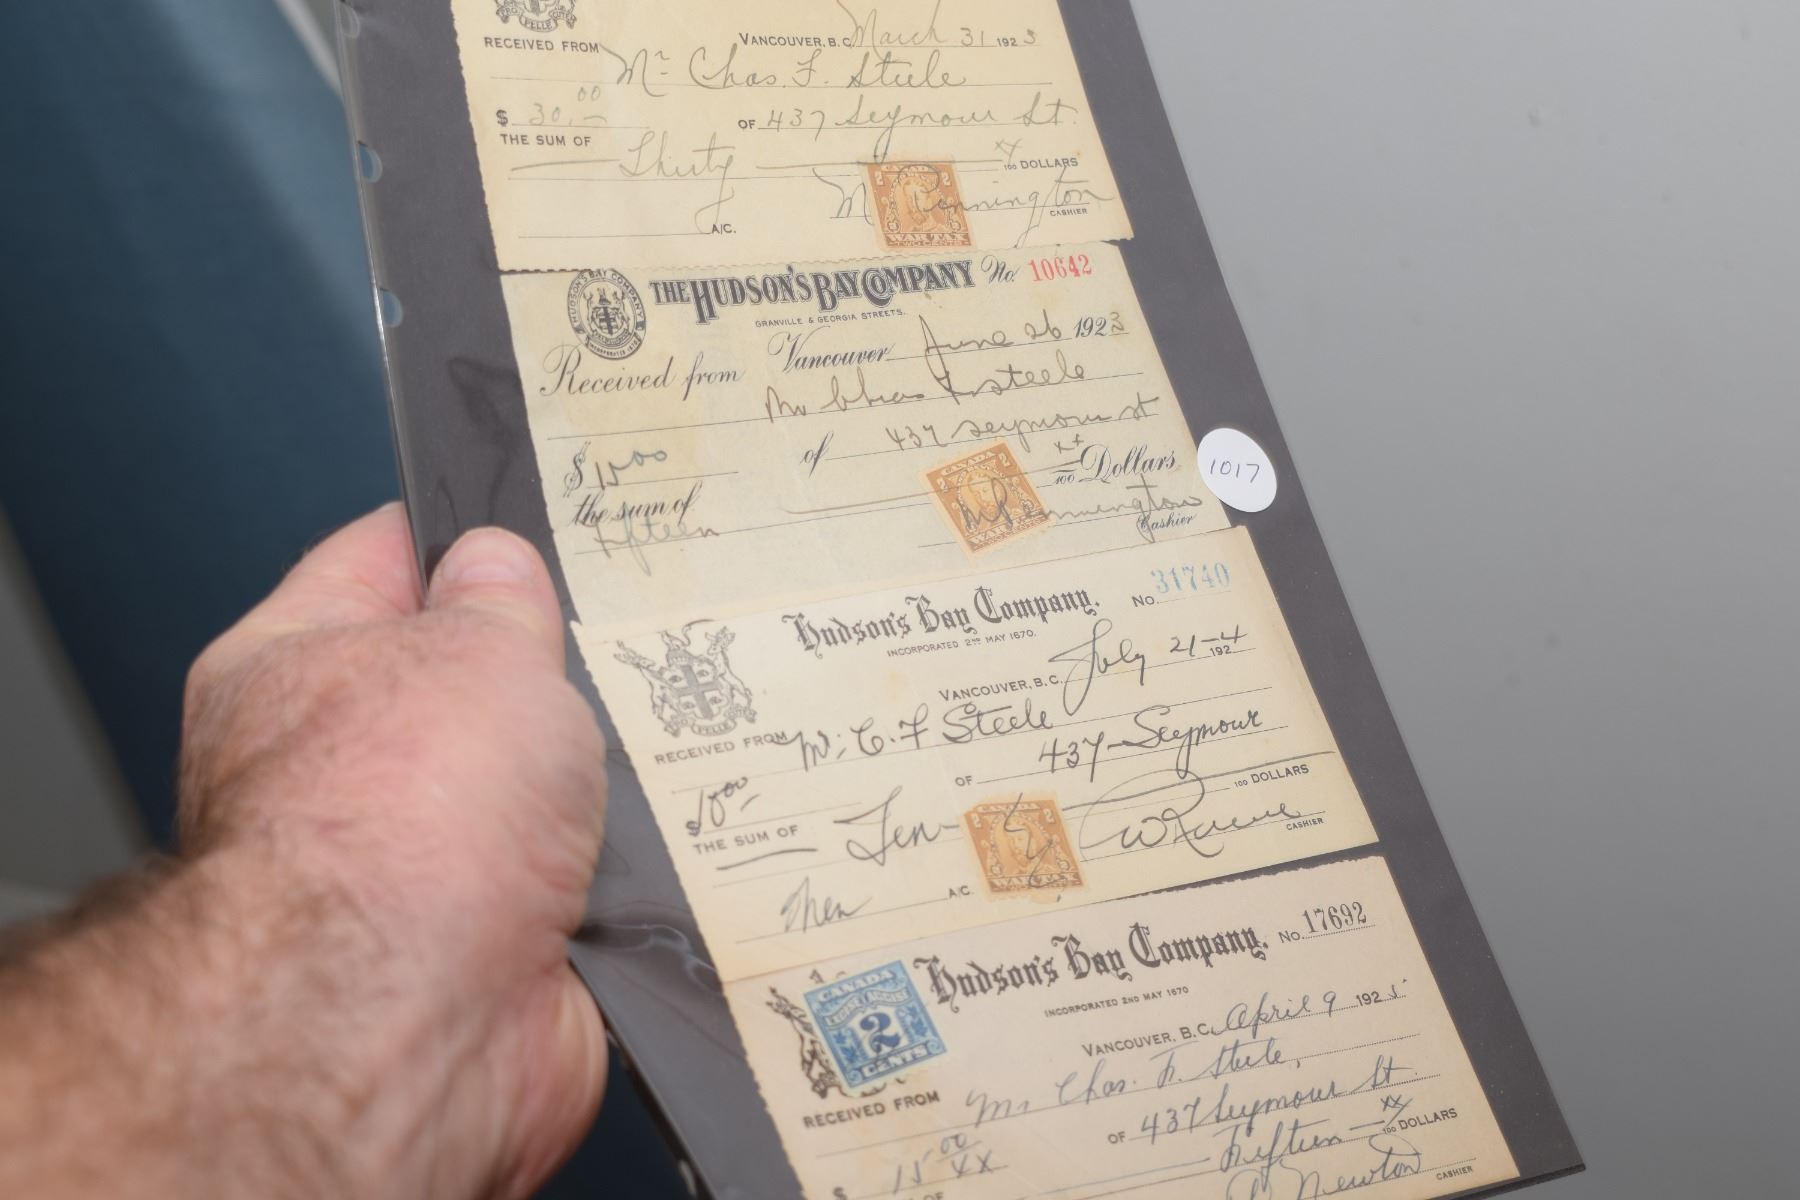 PRO PELLE CUTEM
RECEIVED FROM VANCOUVER, B.C. March 31 1923
Mr Chas. F. Steele
$ 30.00 OF 437 Seymour St.
THE SUM OF Thirty xx/100 DOLLARS
CANADA
2 2
WAR TAX
TWO CENTS
M Pennington
A/C. CASHIER
HUDSON'S BAY COMPANY
INCORPORATED 1670
THE HUDSON'S BAY COMPANY No. 10642
GRANVILLE & GEORGIA STREETS.
Vancouver June 26 1923
Received from Mr Chas F Steele
$ 15.00 of 437 Seymour St
the sum of Fifteen xx/100 Dollars
CANADA
2 2
WAR TAX
TWO CENTS
M Pennington
Cashier
1017
Hudson's Bay Company. No. 31740
INCORPORATED 2ND MAY 1670.
VANCOUVER, B.C. July 21-1924
PRO PELLE CUTEM
RECEIVED FROM Mr. C. F Steele
OF 437 Seymour
$ 10.00
THE SUM OF Ten 100 DOLLARS
CANADA
2 2
WAR TAX
TWO CENTS
CASHIER
A/C.
Hudson's Bay Company. No. 17692
INCORPORATED 2ND MAY 1670
CANADA
2
CENTS
VANCOUVER, B.C. April 9 1925
RECEIVED FROM Mr Chas. F. Steele,
OF 437 Seymour St.
$ 15.00 xx Fifteen xx/100 DOLLARS
OF
Newton
CASHIER